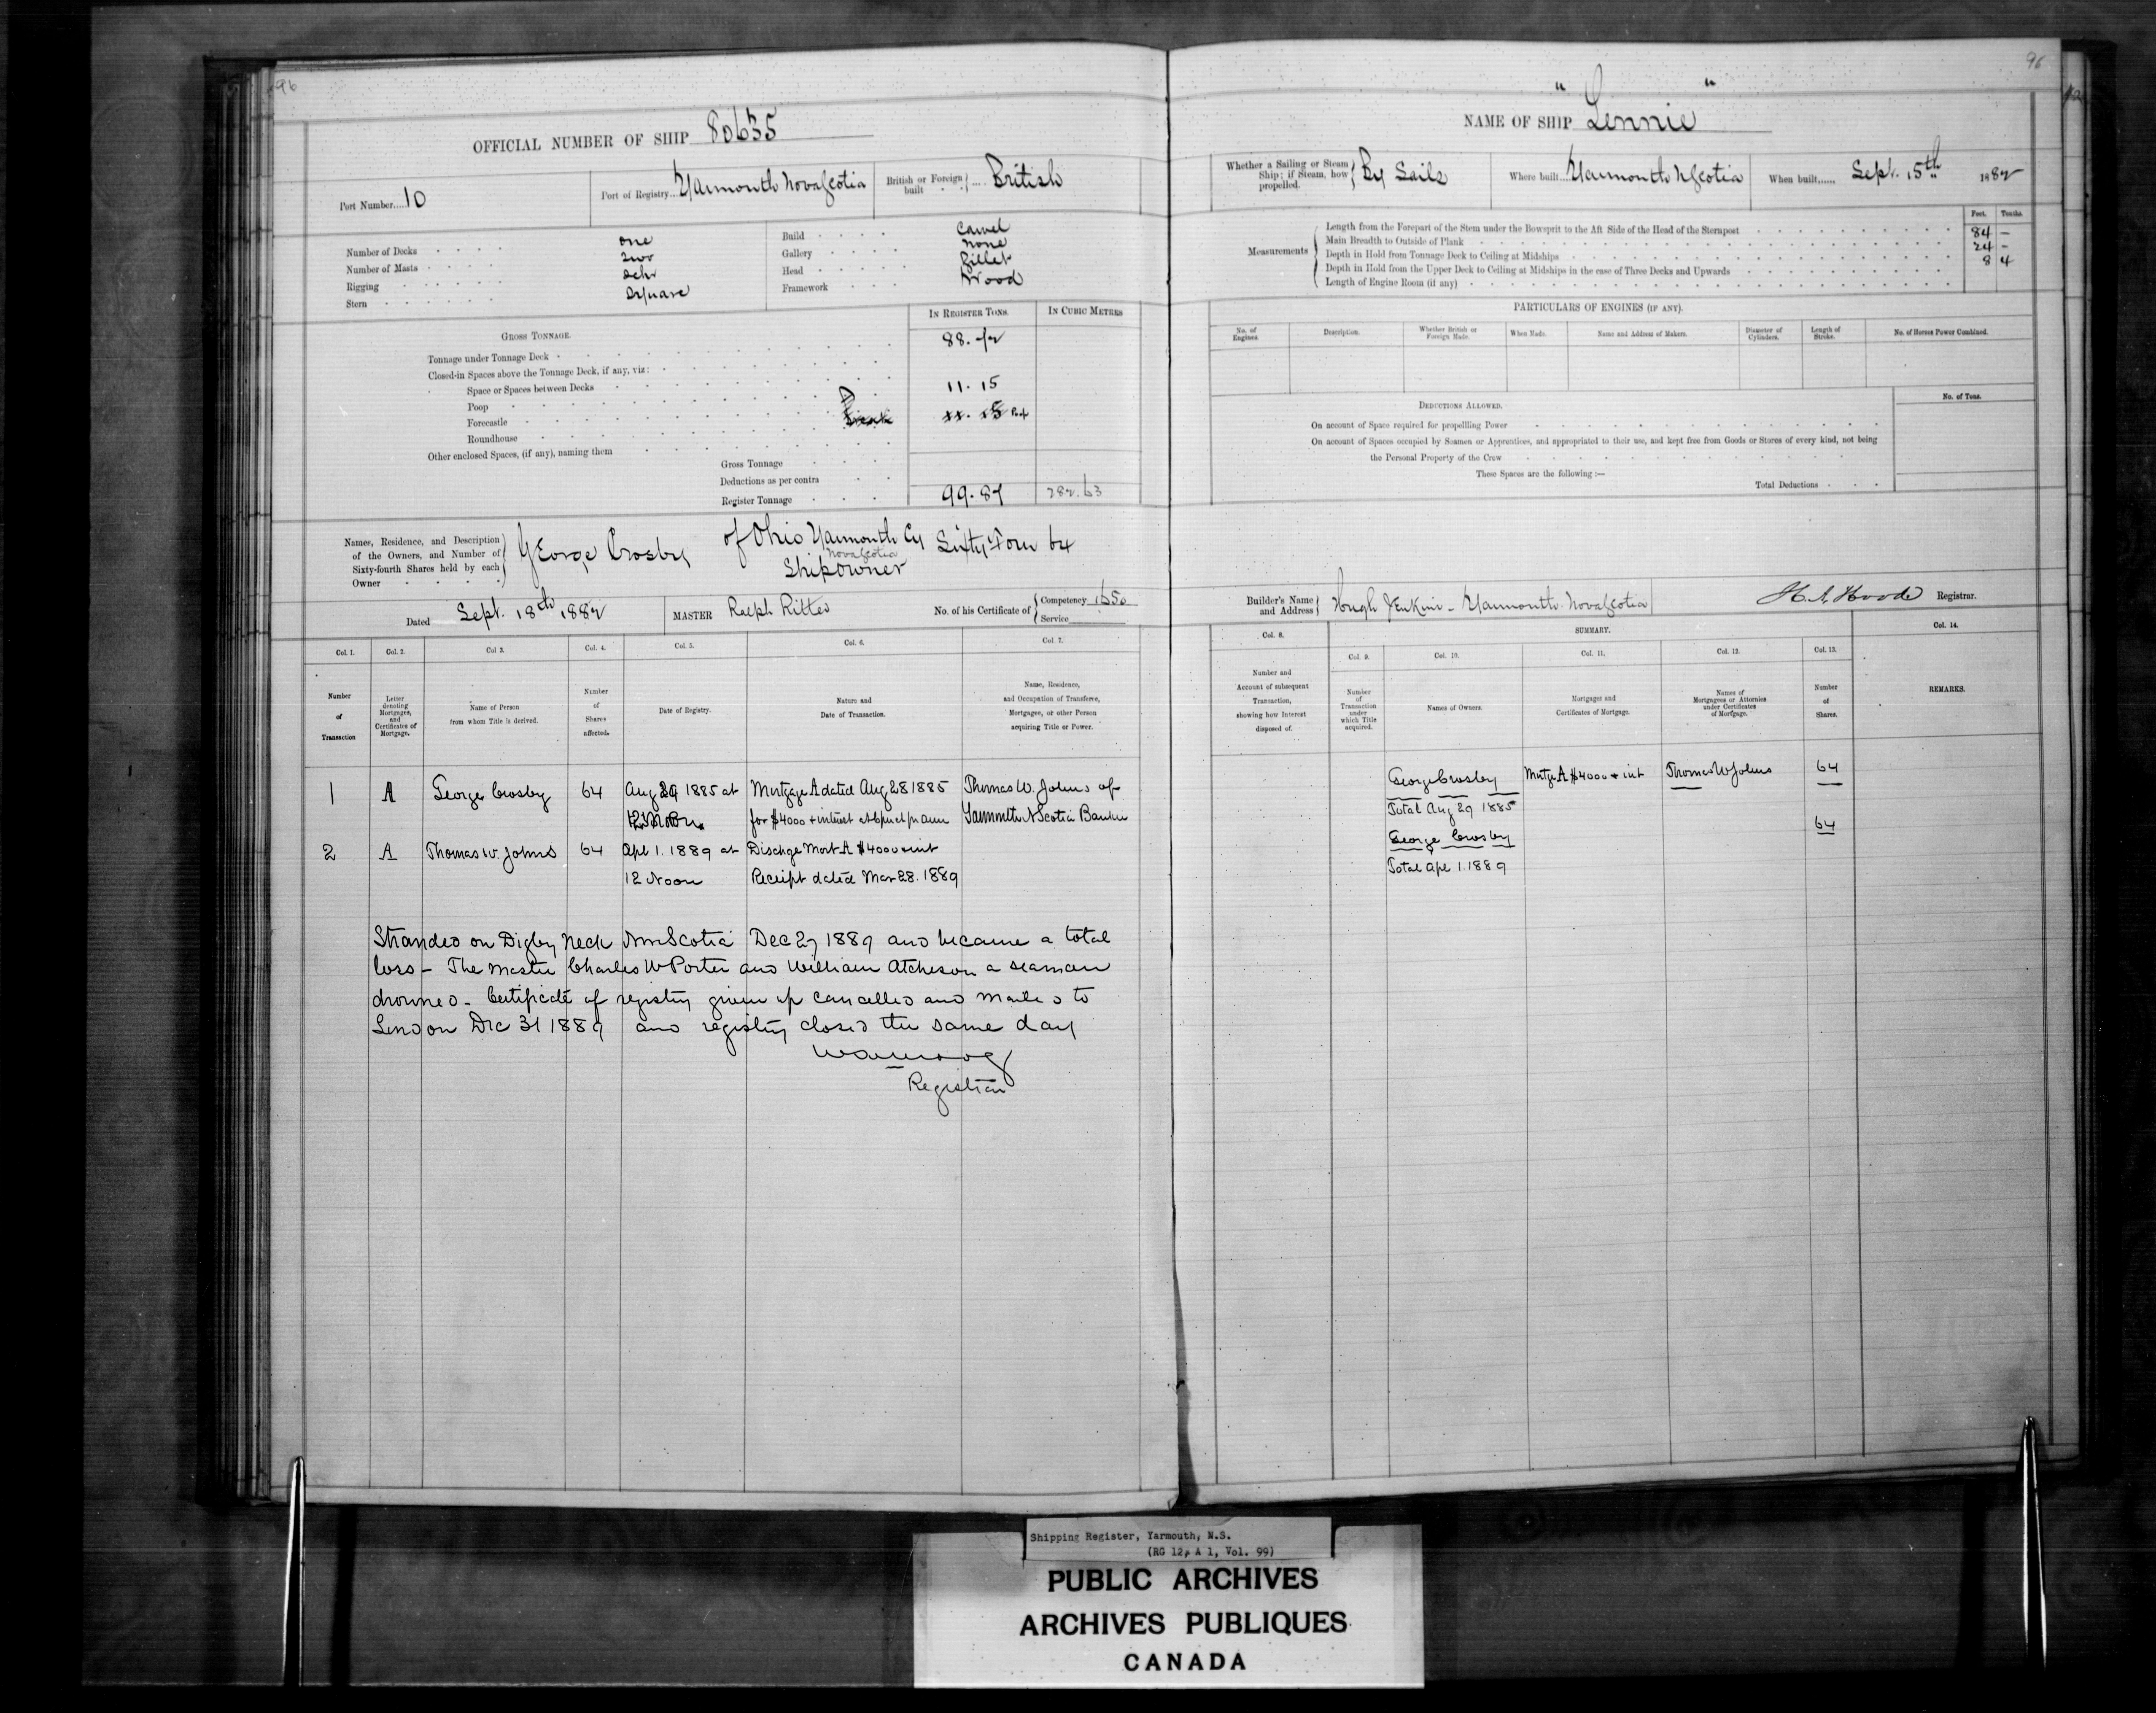 96
OFFICIAL NUMBER OF SHIP 80635
Port Number....10
Port of Registry... Yarmouth Nova Scotia
British or Foreign built .... British
Number of Decks one
Number of Masts two
Rigging Schr
Stern Square
Build Carvel
Gallery none
Head Billet
Framework Wood
IN REGISTER TONS.
IN CUBIC METRES
GROSS TONNAGE.
Tonnage under Tonnage Deck
88.
Closed-in Spaces above the Tonnage Deck, if any, viz:
Space or Spaces between Decks
Poop 11.15
Forecastle
Roundhouse
Other enclosed Spaces, (if any), naming them
Gross Tonnage
Deductions as per contra
Register Tonnage 99.87 282.63
Names, Residence, and Description of the Owners, and Number of Sixty-fourth Shares held by each Owner
George Crosby of Ohio Yarmouth Cy Nova Scotia Shipowner Sixty Four 64
Dated Sept. 18th 1882
MASTER Ralph Ritter
No. of his Certificate of Competency 1650
Service
Col. 1.
Col. 2.
Col 3.
Col. 4.
Col. 5.
Col. 6.
Col. 7.
Number of Transaction
Letter denoting Mortgages, and Certificates of Mortgage.
Name of Person from whom Title is derived.
Number of Shares affected.
Date of Registry.
Nature and Date of Transaction.
Name, Residence, and Occupation of Transferee, Mortgagee, or other Person acquiring Title or Power.
1 A George Crosby 64 Aug 29 1885 at Mortgage A dated Aug 28 1885 Thomas W. Johns of
for $4000 & interest at 6 pr ct pr ann Yarmouth N Scotia Banker
2 A Thomas W. Johns 64 Apl 1. 1889 at Dischge Mort A $4000 & int
12 Noon Receipt dated Mar 28. 1889
Stranded on Digby Neck Nova Scotia Dec 27 1889 and became a total
loss - The Master Charles W Porter and William Atcheson a seaman
drowned - Certificate of registry given up cancelled and mailed to
London Dec 31 1889 and registry closed the same day
Registrar
96
NAME OF SHIP "Lennie"
Whether a Sailing or Steam Ship; if Steam, how propelled. By Sails
Where built... Yarmouth N Scotia
When built...... Sept. 15th 1882
Feet. Tenths.
Measurements
Length from the Forepart of the Stem under the Bowsprit to the Aft Side of the Head of the Sternpost 84 -
Main Breadth to Outside of Plank 24 -
Depth in Hold from Tonnage Deck to Ceiling at Midships 8 4
Depth in Hold from the Upper Deck to Ceiling at Midships in the case of Three Decks and Upwards
Length of Engine Room (if any)
PARTICULARS OF ENGINES (IF ANY).
No. of Engines
Description.
Whether British or Foreign Made.
When Made.
Name and Address of Makers.
Diameter of Cylinders.
Length of Stroke.
No. of Horses Power Combined.
DEDUCTIONS ALLOWED.
No. of Tons.
On account of Space required for propelling Power
On account of Spaces occupied by Seamen or Apprentices, and appropriated to their use, and kept free from Goods or Stores of every kind, not being
the Personal Property of the Crew
These Spaces are the following :—
Total Deductions
Builder's Name and Address Hugh Jenkins - Yarmouth. Nova Scotia
Registrar.
Col. 8.
SUMMARY.
Col. 14.
Col. 9.
Col. 10.
Col. 11.
Col. 12.
Col. 13.
Number and Account of subsequent Transaction, showing how Interest disposed of.
Number of Transaction under which Title acquired.
Names of Owners.
Mortgages and Certificates of Mortgage.
Names of Mortgagees or Attornies under Certificates of Mortgage.
Number of Shares.
REMARKS.
George Crosby Mortge A $4000 & int Thomas W Johns 64
Total Aug 29 1885
64
George Crosby
Total Apl 1. 1889
Shipping Register, Yarmouth, N.S.
(RG 12, A 1, Vol. 99)
PUBLIC ARCHIVES
ARCHIVES PUBLIQUES
CANADA